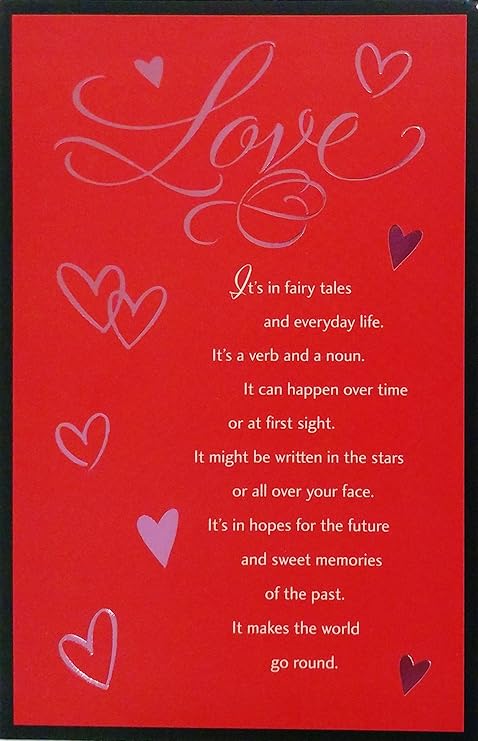 Love
It's in fairy tales
and everyday life.
It's a verb and a noun.
It can happen over time
or at first sight.
It might be written in the stars
or all over your face.
It's in hopes for the future
and sweet memories
of the past.
It makes the world
go round.